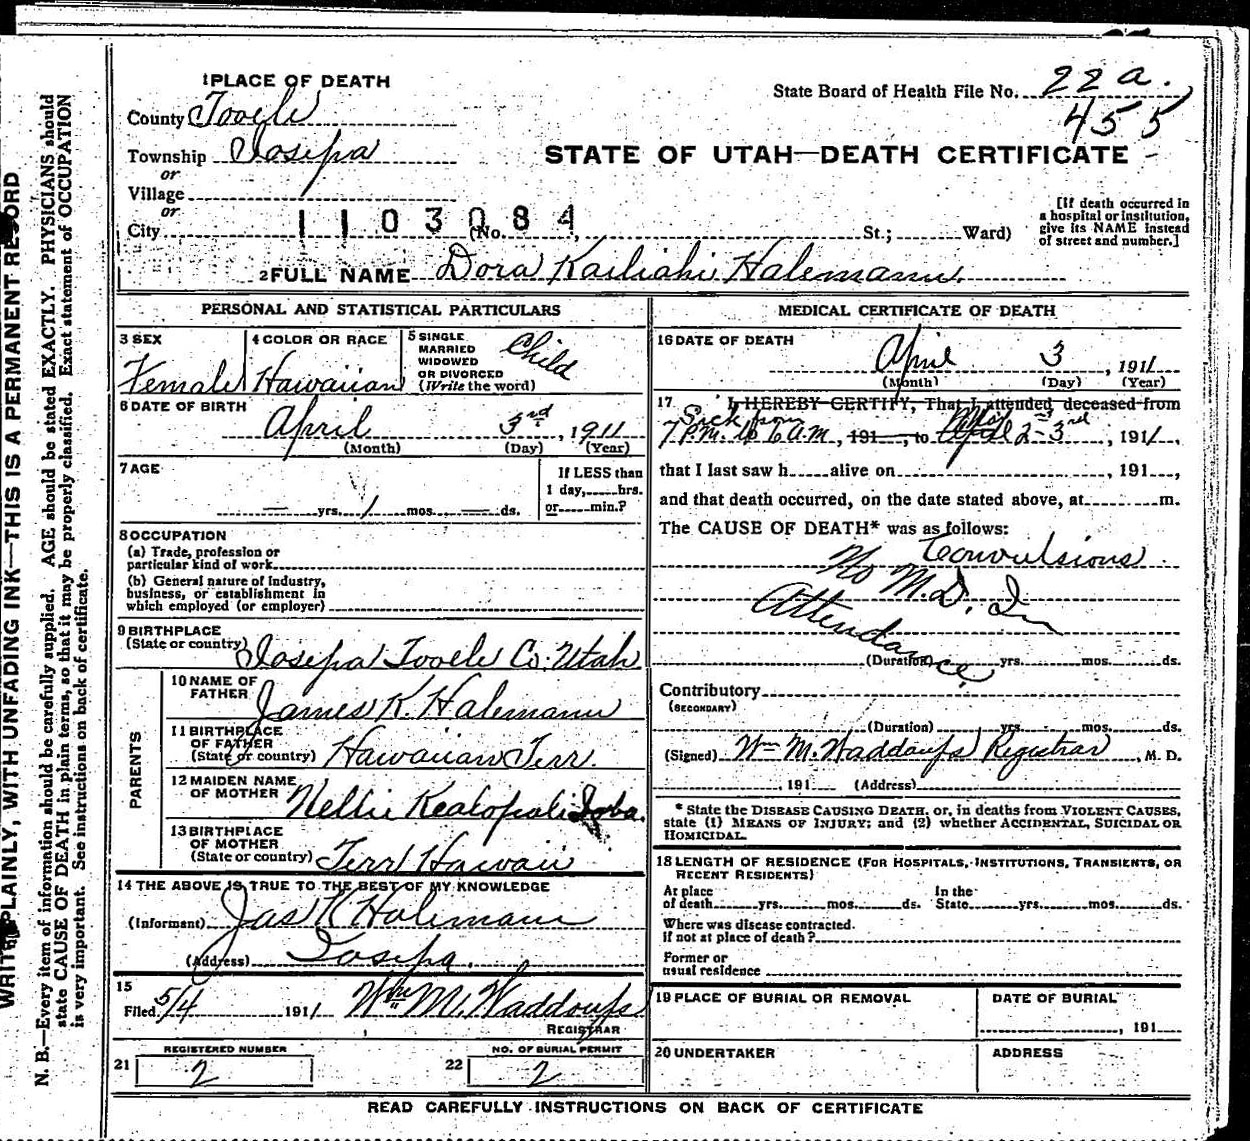 WRITE PLAINLY, WITH UNFADING INK—THIS IS A PERMANENT RECORD
N. B.—Every item of information should be carefully supplied. AGE should be stated EXACTLY. PHYSICIANS should
state CAUSE OF DEATH in plain terms, so that it may be properly classified. Exact statement of OCCUPATION
is very important. See instructions on back of certificate.
1 PLACE OF DEATH
State Board of Health File No. 22 a.
455
County Tooele
Township Iosepa
STATE OF UTAH—DEATH CERTIFICATE
or
Village
or
City
1103084
(No. St.; Ward)
[If death occurred in
a hospital or institution,
give its NAME instead
of street and number.]
2 FULL NAME Dora Kailiahi Halemanu.
PERSONAL AND STATISTICAL PARTICULARS
3 SEX
Female
4 COLOR OR RACE
Hawaiian
5 SINGLE
MARRIED
WIDOWED
OR DIVORCED
(Write the word)
Child
6 DATE OF BIRTH
April 3rd, 1911
(Month) (Day) (Year)
7 AGE
— yrs. 1 mos. — ds.
If LESS than
1 day, hrs.
or min.?
8 OCCUPATION
(a) Trade, profession or
particular kind of work
(b) General nature of industry,
business, or establishment in
which employed (or employer)
9 BIRTHPLACE
(State or country) Iosepa Tooele Co. Utah
PARENTS
10 NAME OF
FATHER James K. Halemanu
11 BIRTHPLACE
OF FATHER
(State or country) Hawaiian Terr.
12 MAIDEN NAME
OF MOTHER Nellie
13 BIRTHPLACE
OF MOTHER
(State or country) Terr Hawaii
14 THE ABOVE IS TRUE TO THE BEST OF MY KNOWLEDGE
(Informant) Jas K Halemanu
(Address) Iosepa.
15
Filed 5/4 1911 Wm M. Waddoups
REGISTRAR
REGISTERED NUMBER
21 2
NO. OF BURIAL PERMIT
22 2
MEDICAL CERTIFICATE OF DEATH
16 DATE OF DEATH
April 3, 1911
(Month) (Day) (Year)
17 I HEREBY CERTIFY, That I attended deceased from
Sick from
7 P.M. to 6 A.M., 191 , to April 2-3rd, 1911,
that I last saw h alive on , 191 ,
and that death occurred, on the date stated above, at m.
The CAUSE OF DEATH* was as follows:
Convulsions.
No M.D. In
Attendance.
(Duration) yrs. mos. ds.
Contributory
(SECONDARY)
(Duration) yrs. mos. ds.
(Signed) Wm M. Waddoups Registrar, M. D.
, 191 (Address)
* State the DISEASE CAUSING DEATH, or, in deaths from VIOLENT CAUSES,
state (1) MEANS OF INJURY; and (2) whether ACCIDENTAL, SUICIDAL OR
HOMICIDAL.
18 LENGTH OF RESIDENCE (FOR HOSPITALS, INSTITUTIONS, TRANSIENTS, OR
RECENT RESIDENTS)
At place
of death yrs. mos. ds.
In the
State yrs. mos. ds.
Where was disease contracted.
if not at place of death?
Former or
usual residence
19 PLACE OF BURIAL OR REMOVAL
DATE OF BURIAL
, 191
20 UNDERTAKER
ADDRESS
READ CAREFULLY INSTRUCTIONS ON BACK OF CERTIFICATE